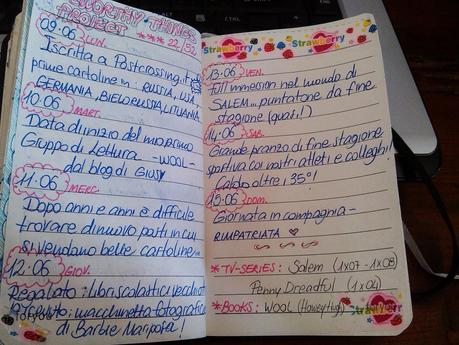 WORTHY THINGS
PROJECT *** 22/52
09:06 LUN.
Iscritta a Postcrossing.it
prime cartoline in: RUSSIA, USA,
GERMANIA, BIELORUSSIA, LITUANIA
10:06 MART.
Data di inizio del mio primo
Gruppo di Lettura - WOOL -
dal blog di GIUSY
11:06 MERC.
Dopo anni e anni è difficile
trovare di nuovo posti in cui
si vendano belle cartoline...
12:06 GIOV.
Regalato: libri scolastici vecchi
macchinetta fotografica
di Barbie Mariposa!
Strawberry Strawberry
13:06 VEN.
Full immersion nel mondo di
SALEM... puntatone da fine
stagione (quasi!)
14:06 SAB.
Grande pranzo di fine stagione
sportiva coi nostri atleti e colleghi!
Caldo oltre i 35°!
15:06 DOM.
Giornata in compagnia -
RIMPATRIATA
*TV-SERIES: Salem (1x07 - 1x08)
Penny Dreadful (1x04)
*BOOKS: WOOL (Howey)
Strawberry